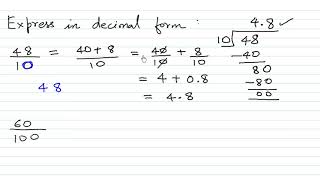 Express in decimal form :
48/10 = 40 + 8/10 = 40/10 + 8/10
= 4 + 0.8
= 4.8
48
60/100
4.8 ✓
10)48
-40
80
-80
00